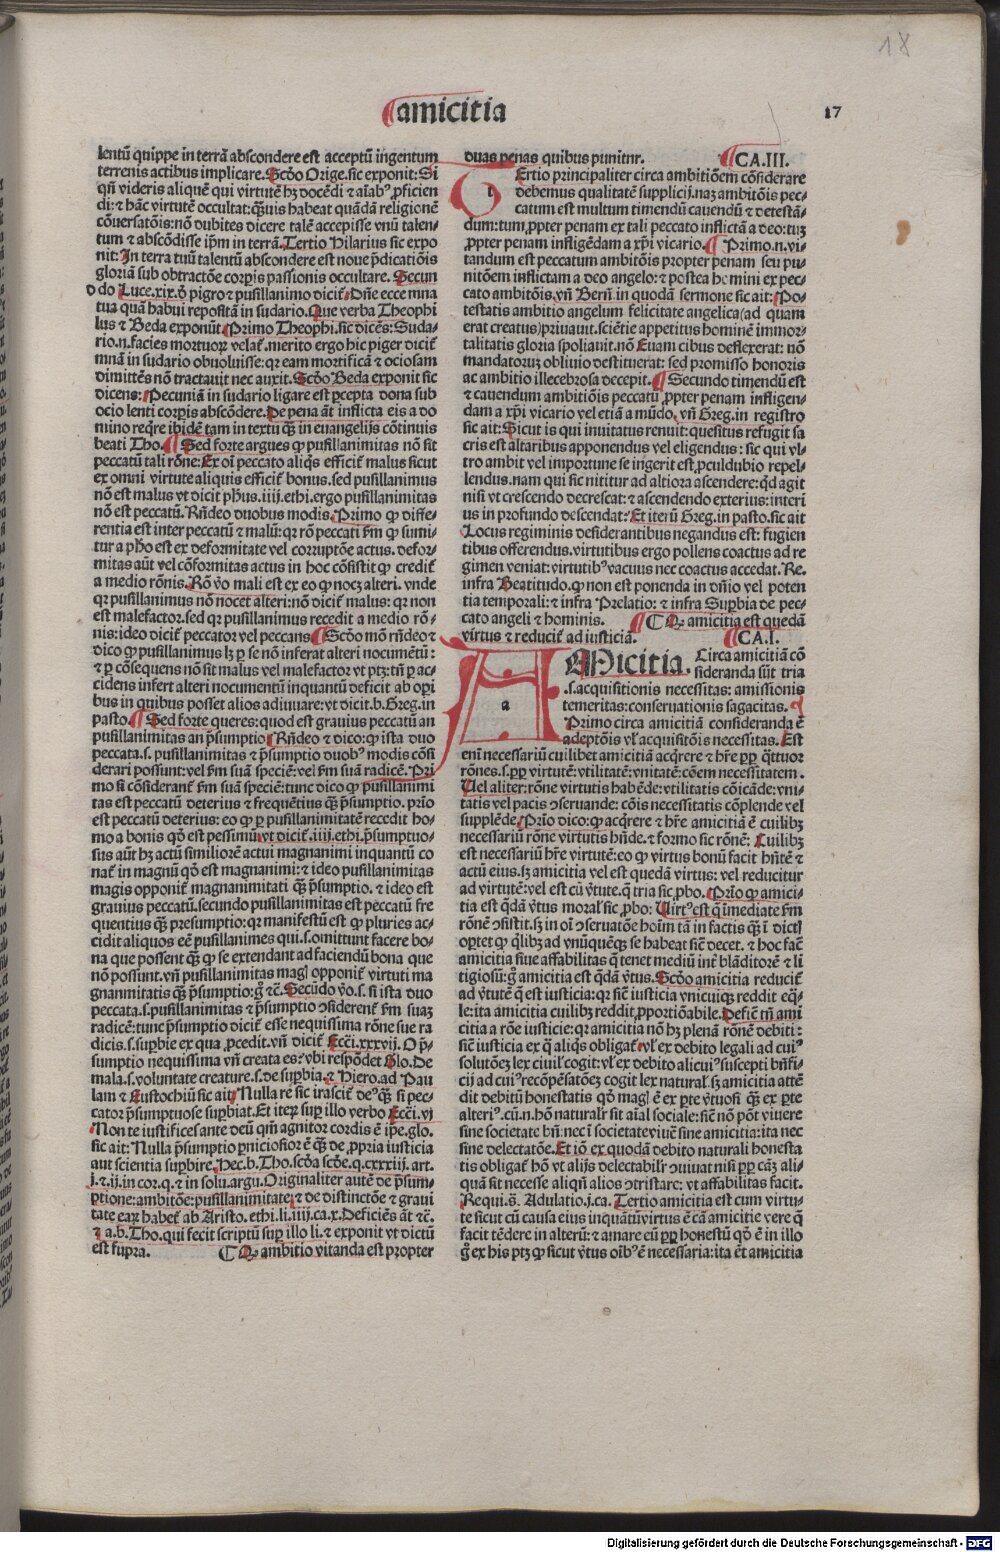 18
amicitia
17
lentū quippe in terrā abscondere est acceptū ingentum
terrenis actibus implicare. Scđo Orige. sic exponit: Si
qñ videris aliquē qui virtutē hȝ docēdi & aīabꝰ ꝓficien
di: & hāc virtutē occultat: q̄uis habeat quādā religionē
cōuersatōis: nō dubites dicere talē accepisse vnū talen-
tum & abscōdisse ip̄m in terrā. Tertio Hilarius sic expo
nit: In terra tuū talentū abscondere est noue p̄dicatiōis
gloriā sub obtractōe corpis passionis occultare. Secun
do Luce.xix. đ pigro & pusillanimo dicit̄. Dñe ecce mna
tua quā habui repositā in sudario. Que verba Theophi
lus & Beda exponūt. Primo Theophi. sic dicēs: Suda-
rio.n. facies mortuoꝝ velat̄. merito ergo hic piger dicit̄
mnā in sudario obuoluisse: qꝛ eam mortificā & ociosam
dimittēs nō tractauit nec auxit. Scđo Beda exponit sic
dicens: Pecuniā in sudario ligare est ꝑcepta dona sub
ocio lenti corpis abscōdere. De pena āt inflicta eis a do
mino reqͥre ibidē tam in textu qȝ in euangelijs cōtinuis
beati Tho. Sed forte argues ꝙ pusillanimitas nō sit
peccatū tali rōne: Ex oī peccato aliqͥs efficit̄ malus sicut
ex omni virtute aliquis efficit̄ bonus. sed pusillanimus
nō est malus vt dicit phus.iiij.ethi. ergo pusillanimitas
nō est peccatū. Rñdeo duobus modis. Primo ꝙ diffe-
rentia est inter peccatū & malū: qꝛ rō peccati fm̄ ꝙ sumi-
tur a pħo est ex deformitate vel corruptōe actus. defor-
mitas aūt vel cōformitas actus in hoc cōsistit ꝙ credit̄
a medio rōnis. Rō v̄o mali est ex eo ꝙ nocȝ alteri. vnde
qꝛ pusillanimus nō nocet alteri: nō dicit̄ malus: qꝛ non
est malefactor. sed qꝛ pusillanimus recedit a medio rō-
nis: ideo dicit̄ peccator vel peccans. Scđo mō rñdeo &
dico ꝙ pusillanimus lȝ ꝑ se nō inferat alteri nocumētū:
& ꝑ cōsequens nō sit malus vel malefactor vt ptȝ: tñ ꝑ ac-
cidens infert alteri nocumentū inquantū deficit ab opi
bus in quibus posset alios adiuuare: vt dicit.b. Greg.in
pasto. Sed forte queres: quod est grauius peccatū an
pusillanimitas an p̄sumptio. Rñdeo & dico: ꝙ ista duo
peccata.s. pusillanimitas & p̄sumptio duobꝰ modis cōsi
derari possunt: vel fm̄ suā speciē: vel fm̄ suā radicē. Pri
mo si cōsiderant̄ fm̄ suā speciē: tunc dico ꝙ pusillanimi
tas est peccatū deterius & frequētius qȝ p̄sumptio. prīo
est peccatū deterius: eo ꝙ ꝑ pusillanimitatē recedit ho-
mo a bonis qđ est pessimū: vt dicit̄.iiij.ethi. p̄sumptuo-
sus aūt hȝ actū similiorē actui magnanimi inquantū co
nat̄ in magnū qđ est magnanimi: & ideo pusillanimitas
magis opponit̄ magnanimitati qȝ p̄sumptio. & ideo est
grauius peccatū. secundo pusillanimitas est peccatū fre
quentius qȝ presumptio: qꝛ manifestū est ꝙ pluries ac-
cidit aliquos eē pusillanimes qui.s. omittunt facere bo-
na que possent qȝ ꝙ se extendant ad faciendū bona que
nō possunt. vñ pusillanimitas magꝭ opponit̄ virtuti ma
gnanmitatis qȝ p̄sumptio: gͦ &c̄. Secūdo v̄o.s. si ista duo
peccata.s. pusillanimitas & p̄sumptio ꝯsiderent̄ fm̄ suaȝ
radicē: tunc p̄sumptio dicit̄ esse nequissima rōne sue ra
dicis.s. supbie ex qua ꝓcedit. vñ dicit̄ Ecci.xxxvij. O p̄-
sumptio nequissima vñ creata es? vbi respōdet Glo. De
mala.s. voluntate creature.s. de supbia. & Hiero. ad Pau
lam & Eustochiū sic ait. Nulla re sic irascit̄ deꝰ qȝ si pec-
cator p̄sumptuose supbiat. Et iteꝝ sup illo verbo Ecci.vj
Non te iustifices ante deū qm̄ agnitor cordis ē ipe. glo.
sic ait: Nulla p̄sumptio pniciosior ē qȝ de ꝓpria iusticia
aut scientia supbire. Hec.b. Tho. scđa scđe.q.cxxxiij. art.
j.&.ij. in cor.q.& in solu.argu. Originaliter autē de p̄sum-
ptione: ambitōe: pusillanimitate: & de distinctōe & graui
tate eaꝝ habet̄ ab Aristo.ethi.li.iiij.ca.x. Deficiēs āt &c̄.
& a.b. Tho. qui fecit scriptū sup illo li. & exponit vt dictū
est supra. ¶ Q ambitio vitanda est propter
duas penas quibus punitur. CA.III.
Tertio principaliter circa ambitiōem cōsiderare
debemus qualitatē supplicij. naȝ ambitōis pec-
catum est multum timendū cauendū & detestā-
dum: tum ꝓpter penam ex tali peccato inflictā a deo: tuȝ
ꝓpter penam infligēdam a xp̄i vicario. Primo.n. vi-
tandum est peccatum ambitōis propter penam seu pu-
nitōem inflictam a deo angelo: & postea homini ex pec-
cato ambitōis. vñ Berñ. in quodā sermone sic ait: Po-
testatis ambitio angelum felicitate angelica (ad quam
erat creatus) priuauit. sciētie appetitus hominē immor
talitatis gloria spoliauit. nō Euam cibus deflexerat: nō
mandatoꝝ obliuio destituerat: sed promisso honoris
ac ambitio illecebrosa decepit. Secundo timendū est
& cauendum ambitiōis peccatū ꝓpter penam infligen-
dam a xp̄i vicario vel etiā a mūdo. vñ Greg.in registro
sic ait: Sicut is qui inuitatus renuit: quesitus refugit sa
cris est altaribus apponendus vel eligendus: sic qui vl-
tro ambit vel importune se ingerit est ꝓculdubio repel-
lendus. nam qui sic nititur ad altiora ascendere: qđ agit
nisi vt crescendo decrescat: & ascendendo exterius: interi
us in profundo descendat? Et iterū Greg.in pasto. sic ait
Locus regiminis desiderantibus negandus est: fugien
tibus offerendus. virtutibus ergo pollens coactus ad re
gimen veniat: virtutibꝰ vacuus nec coactus accedat. Re.
infra Beatitudo. ꝙ non est ponenda in dñio vel poten
tia temporali: & infra Prelatio: & infra Supbia de pec-
cato angeli & hominis. ¶ Q amicitia est quedā
virtus & reducit̄ ad iusticiā. CA.I.
AMicitia. Circa amicitiā cō
sideranda sūt tria
.s. acquisitionis necessitas: amissionis
temeritas: conseruationis sagacitas.
Primo circa amicitiā consideranda ē
adeptōis vl̄ acquisitōis necessitas. Est
eni necessariū cuilibet amicitiā acqͥrere & hr̄e ꝑp q̄ttuor
rōnes.s.ꝑp virtutē: vtilitatē: vnitatē: cōem necessitatem.
Uel aliter: rōne virtutis habēde: vtilitatis cōicāde: vni-
tatis vel pacis ꝯseruande: cōis necessitatis cōplende vel
supplēde. Prīo dico: ꝙ acqͥrere & hr̄e amicitiā ē cuilibȝ
necessariū rōne virtutis hn̄de. & formo sic rōnē: Cuilibȝ
est necessariū hr̄e virtutē: eo ꝙ virtus bonū facit hn̄tē &
actū eius. sȝ amicitia vel est quedā virtus: vel reducitur
ad virtutē: vel est cū v̄tute. q̄ tria sic ꝓbo. Prīo ꝙ amici-
tia est qdā v̄tus moral̄ sic ꝓbo: Uirtꝰ est q̄ imediate fm̄
rōnē ꝯsistit. sȝ in oī ꝯseruatōe hoīm tā in factis qȝ ī dictꝭ
oportet ꝙ qͥlibȝ ad vnūquēqȝ se habeat sic̄ decet. & hoc facͥ
amicitia siue affabilitas q̄ tenet mediū int̄ blāditorē & li
tigiosū: gͦ amicitia est qdā v̄tus. Scđo amicitia reducit̄
ad v̄tutē q̄ est iusticia: qꝛ sic̄ iusticia vnicuiqȝ reddit eq̄-
le: ita amicitia cuilibȝ reddit ꝓportiōabile. Defic̄ tñ ami
citia a rōe iusticie: qꝛ amicitia nō hȝ plenā rōnē debiti:
sic̄ iusticia ex q̄ aliqͥs obligat̄. vl̄ ex debito legali ad cuiꝰ
solutōeȝ lex ciuil̄ cogit: vl̄ ex debito alicuiꝰ suscepti bn̄fi-
cij ad cuiꝰ recōpēsatōeȝ cogit lex natural̄. sȝ amicitia attē
dit debitū honestatis qđ magꝭ ē ex pte v̄tuosi qȝ ex pte
alteriꝰ. cū.n. hō naturalr̄ sit aīal sociale: sic̄ nō pōt viuere
sine societate bñ: nec ī societate viuē sine amicitia: ita nec
sine delectatōe. Et iō ex quodā debito naturali honesta
tis obligat̄ hō vt alijs delectabilr̄ ꝯuiuat nisi ꝑp cāȝ ali-
quā sit necesse aliqñ alios ꝯtristare: vt affabilitas facit.
Requi.s̄. Adulatio.j.ca. Tertio amicitia est cum virtu-
te sicut cū causa eius inquātū virtus ē cā amicitie vere q̄
facit tēdere in alterū: & amare eū ꝑp honestū qđ ē in illo
gͦ ex his ptȝ ꝙ sicut v̄tus oībꝰ ē necessaria: ita ēt amicitia
Digitalisierung gefördert durch die Deutsche Forschungsgemeinschaft - DFG